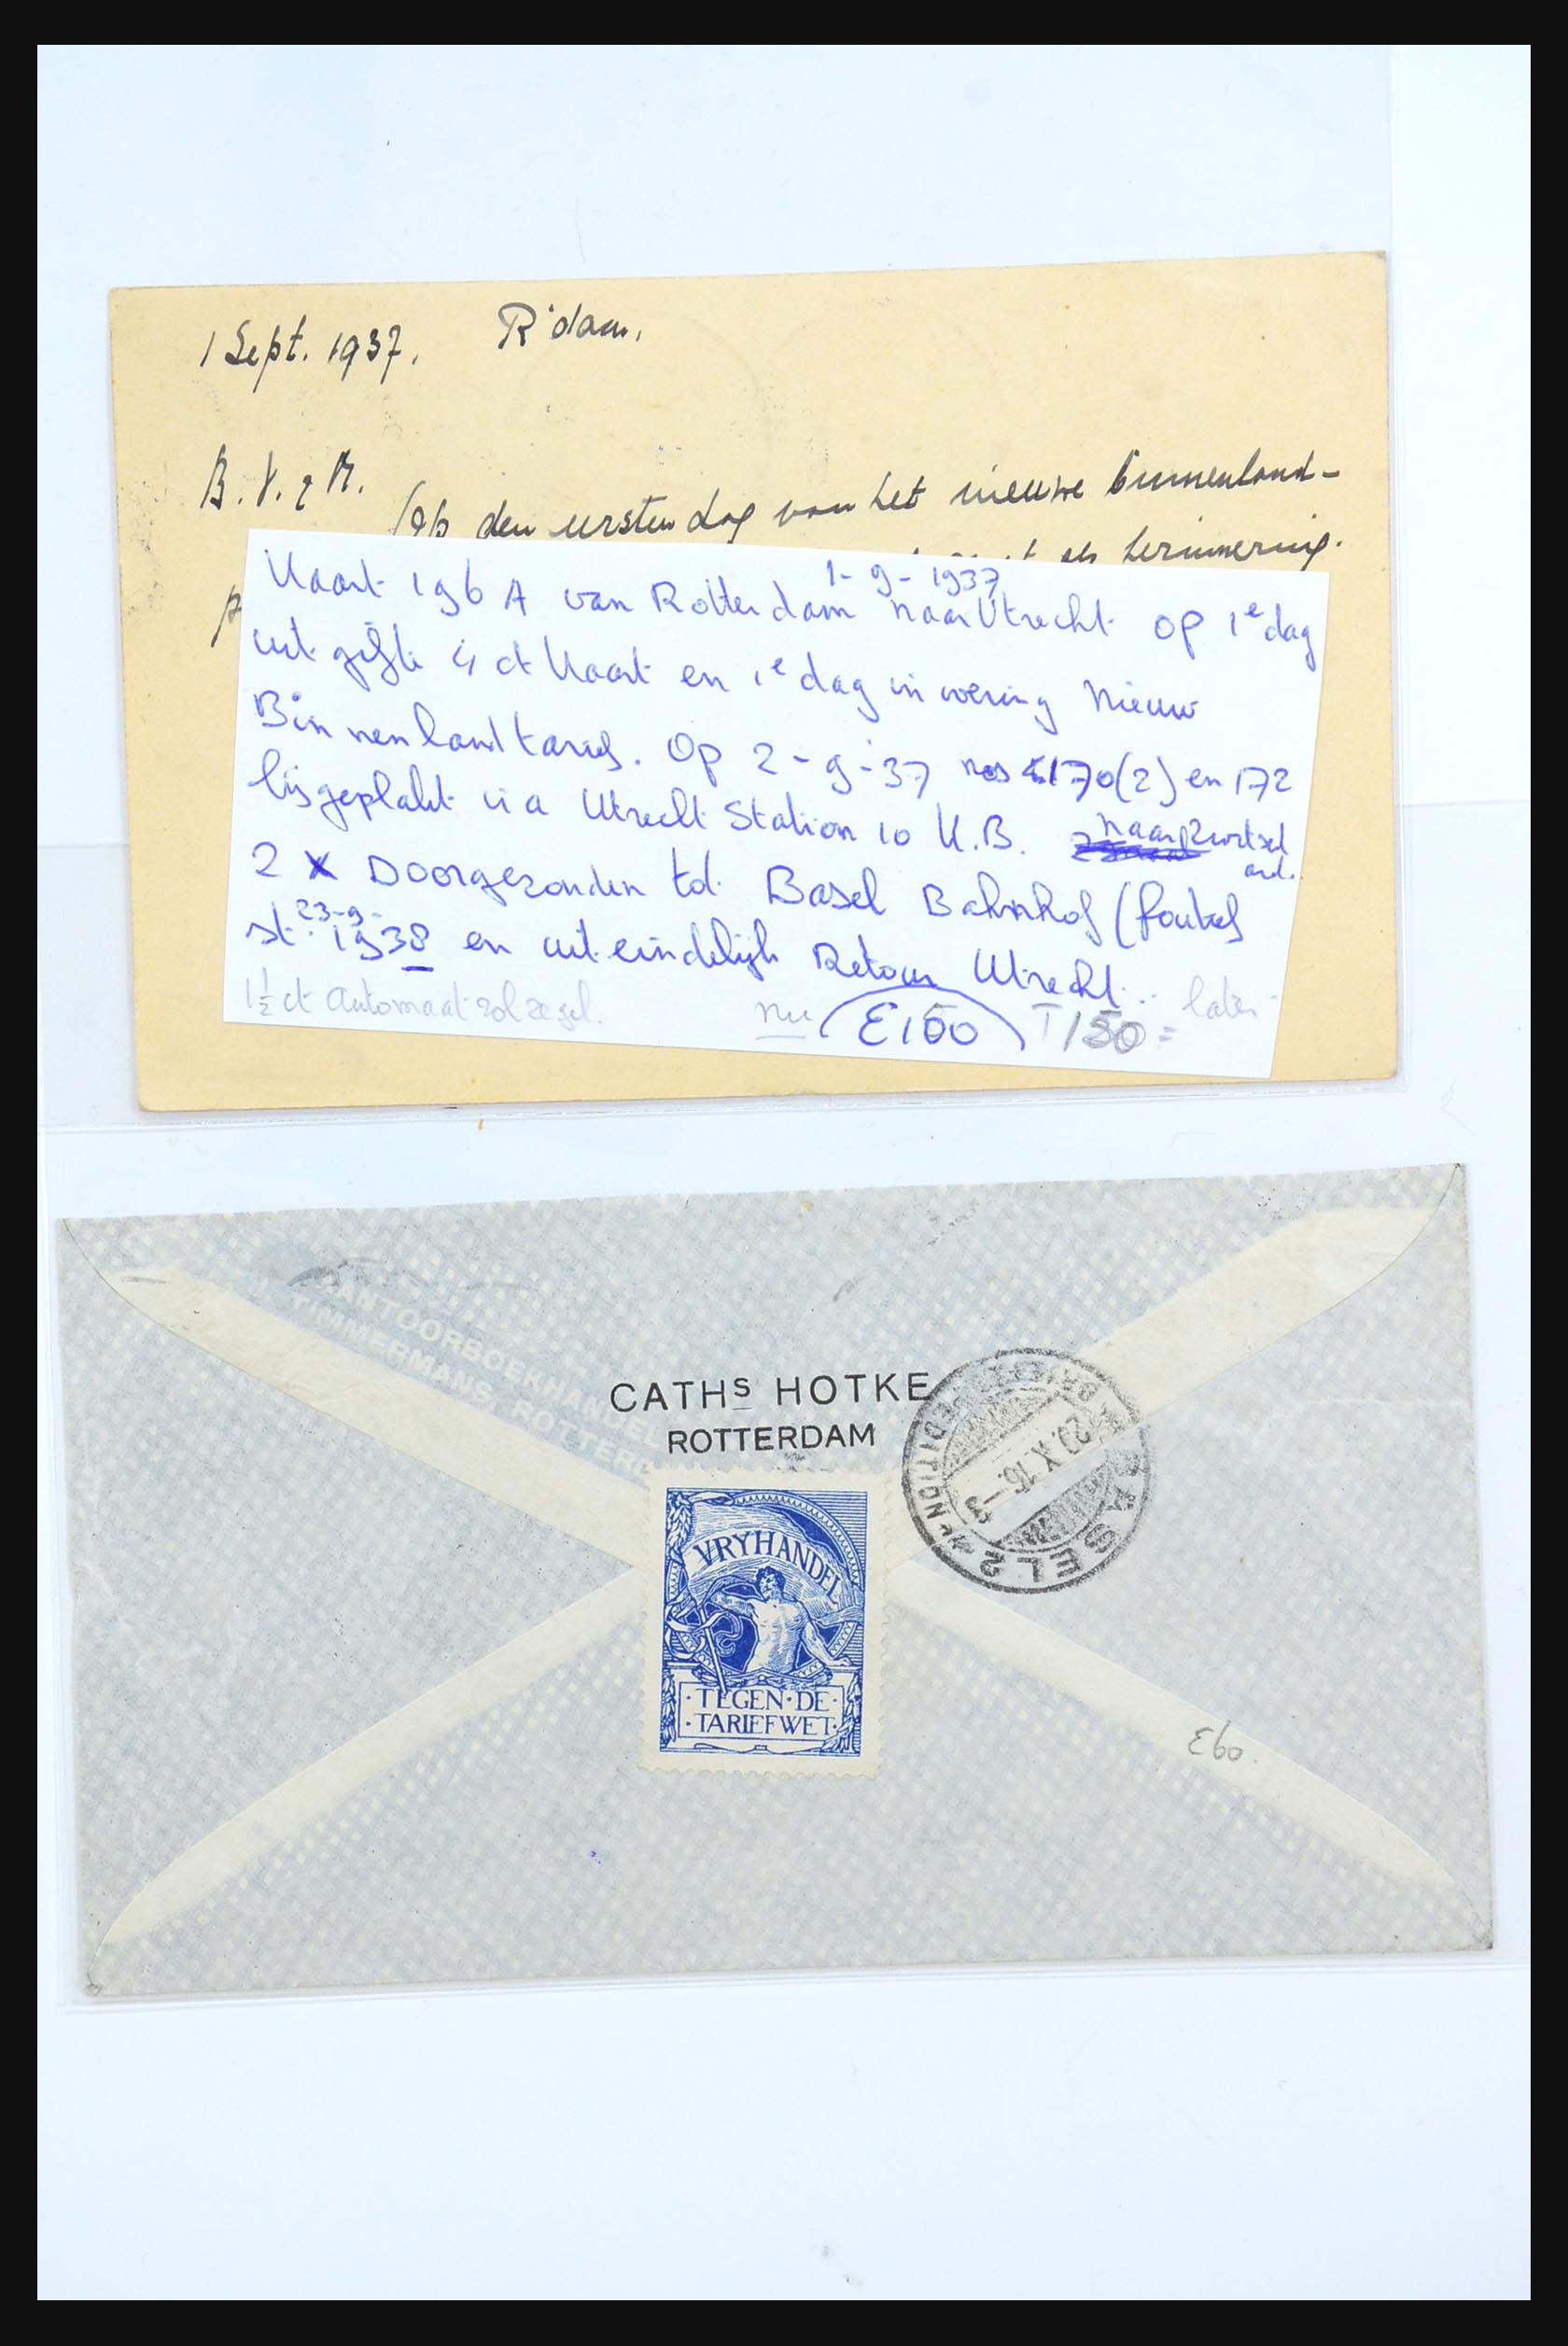 1 Sept. 1937. R'dam.
B. V. & M.
Op den eersten dag van het nieuwe binnenland-
als herinnering.
1-9-1937
Kaart 196 A van Rotterdam naar Utrecht op 1e dag
uitgifte 4 ct Kaart en 1e dag in wering nieuw
Binnenland tarief. Op 2-9-37 nos 170(2) en 172
bijgeplakt via Utrecht Station 10 U.B. naar Zwitserland.
2 X Doorgezonden tot Basel Bahnhof (foutief
st. 23-9-1938 en uiteindelijk Retour Utrecht.
1½ ct Automaatrolzegel. nu €100 150= later
KANTOORBOEKHANDEL
TIMMERMANS, ROTTERD
CATHS HOTKE
ROTTERDAM
BASEL 2
BRIEFEXPEDITION
20.X.16.-3
VRYHANDEL
·TEGEN·DE·
·TARIEFWET·
€60.